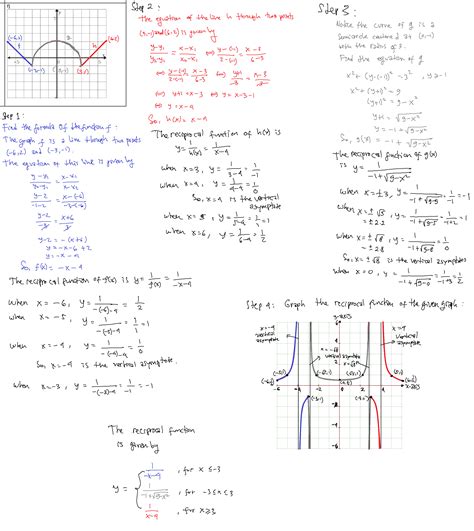 Step 1:
Find the formula of the function f:
The graph f is a line through two points
(-6,2) and (-3,-1).
The equation of this line is given by
y-y₁ / y₂-y₁ = x-x₁ / x₂-x₁
y-2 / -1-2 = x-(-6) / -3-(-6)
y-2 / -3 = x+6 / 3
y-2 = -(x+6)
y = -x-6+2
y = -x-4
So, f(x) = -x-4
The reciprocal function of f(x) is y = 1/f(x) = 1/(-x-4)
when x=-6, y = 1/(-(-6)-4) = 1/2
when x=-5, y = 1/(-(-5)-4) = 1/1 = 1
when x=-4, y = 1/(-(-4)-4) = 1/0
So, x=-4 is the vertical asymptote.
when x=-3, y = 1/(-(-3)-4) = 1/-1 = -1
Step 2:
The equation of the line h through two points
(3,-1) and (6,2) is given by
y-y₁ / y₂-y₁ = x-x₁ / x₂-x₁ ⇔ y-(-1) / 2-(-1) = x-3 / 6-3
⇔ y-(-1) / 2-(-1) = x-3 / 6-3 ⇔ y+1 / 3 = x-3 / 3
⇔ y+1 = x-3 ⇔ y = x-3-1
⇔ y = x-4
So, h(x) = x-4
The reciprocal function of h(x) is
y = 1/h(x) = 1/(x-4)
when x=3, y = 1/(3-4) = 1/-1
when x=4, y = 1/(4-4) = 1/0
So, x=4 is the vertical asymptote
when x=5, y = 1/(5-4) = 1/1 = 1
when x=6, y = 1/(6-4) = 1/2
Step 3:
Notice the curve of g is a
semicircle centered at (0,-1)
with the radius of 3.
Find the equation of g
x²+(y-(-1))² = 3², y≥-1
x²+(y+1)² = 9
(y+1)² = 9-x²
y+1 = √(9-x²)
y = -1+√(9-x²)
So, g(x) = -1+√(9-x²)
The reciprocal function of g(x)
is y = 1/(-1+√(9-x²))
when x=±3, y = 1/(-1+√(9-9)) = 1/-1 = -1
when x=±√8, y = 1/(-1+√(9-8)) = 1/0
So, x=±√8 is the vertical asymptotes
when x=0, y = 1/(-1+√(9-0)) = 1/(-1+3) = 1/2
Step 4: Graph the reciprocal function of the given graph:
y-axis
x=-4
vertical
asymptote
x=4
vertical
asymptote
x-axis
The reciprocal function
is given by
y = { 1/(-x-4), for x≤-3
1/(-1+√(9-x²)), for -3≤x≤3
1/(x-4), for x≥3